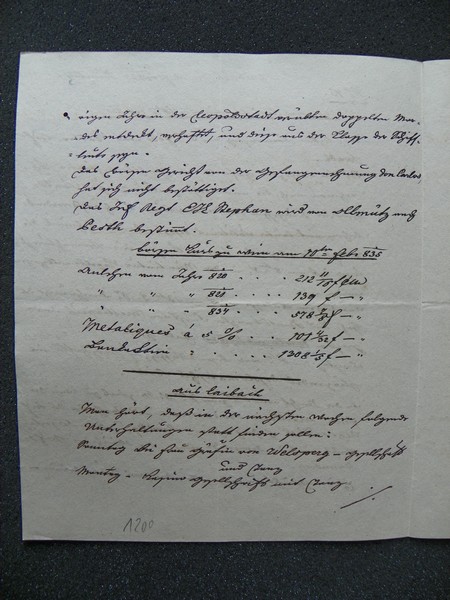 vorigen Jahres in der Leopoldstadt verübten doppelten Mor-
des entdeckt, verhaftet, und diese aus der Classe der Schiff-
leute seyn.
Das Börsen Gerücht von der Gefangennehmung Don Carlos
hat sich nicht bestättiget.
Das Inf Regt EH Stephan wird von Ollmütz nach
Pesth bestimmt.
Börse Curs zu Wien am 10ten Feb: 835
Anlehen vom Jahre 820 . . . 212 f
" " " 821 . . . 139 f — "
" " " 834 . . . 578 f — "
Metaliques á 5 % . . . 101 f — "
Bankactien " . . . . 1308 f — "
Aus Laibach
Man hört, daß in der nächsten Woche folgende
Unterhaltungen statt finden sollen:
Sonntag bei Frau Gräfin von Welsperg - Gesellschaft
und Tanz
Montag - Casino Gesellschaft mit Tanz
1200